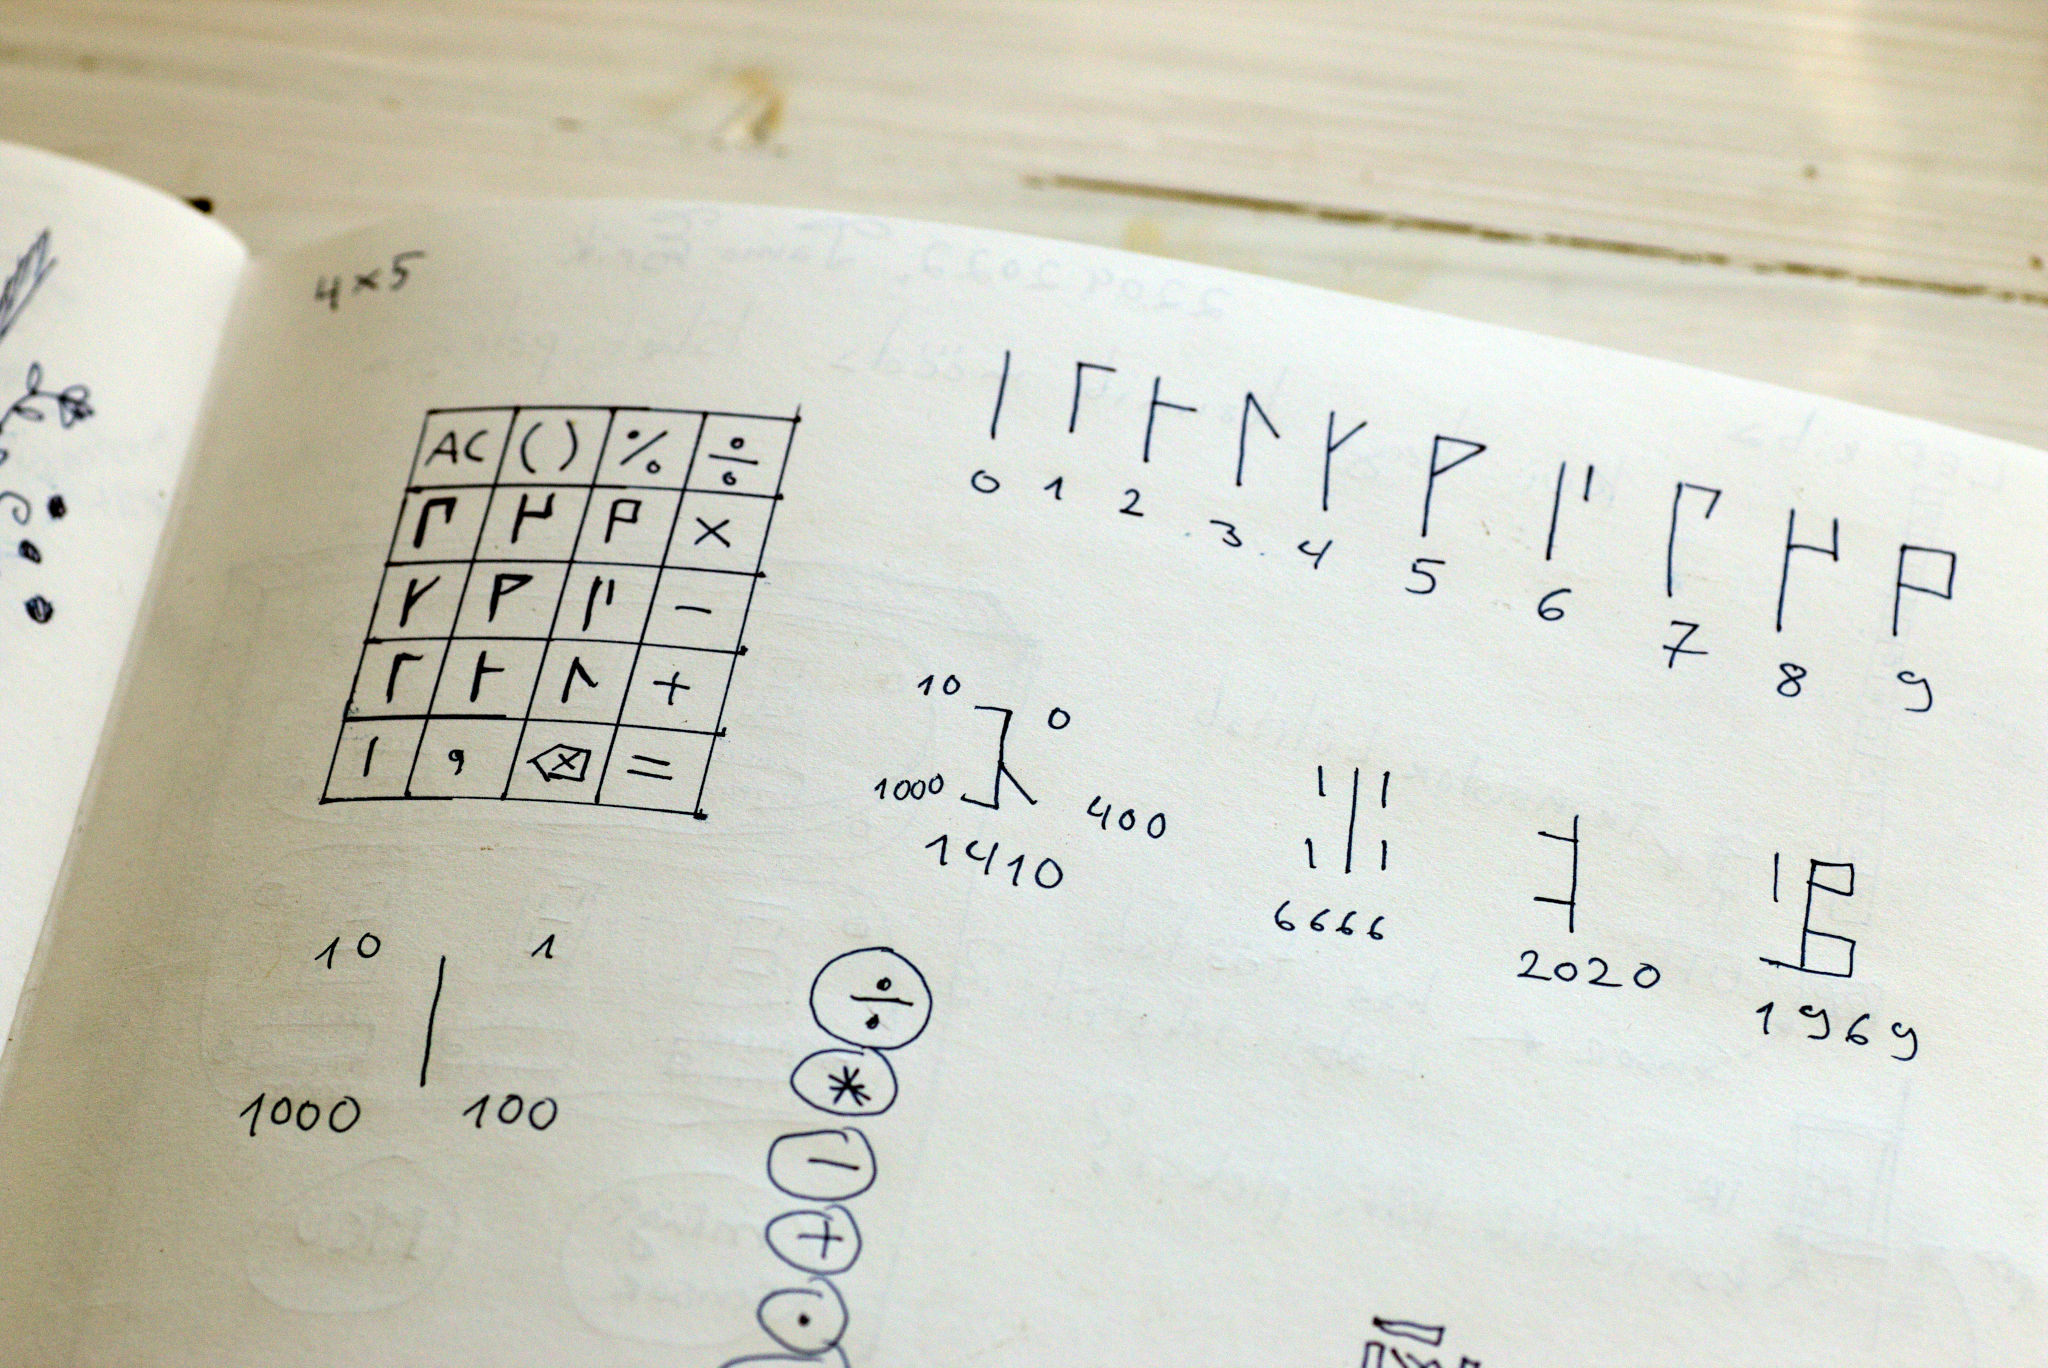 4×5
AC ( ) % ÷
×
−
+
, ⌫ =
0 1 2 3 4 5 6 7 8 9
10 0
1000 400
1410
6666
2020
1969
10 1
1000 100
÷
*
−
+
·